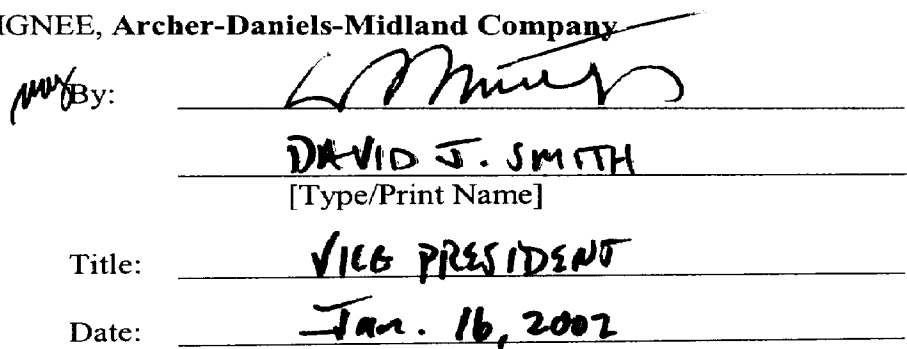 IGNEE, Archer-Daniels-Midland Company
By:
DAVID J. SMITH
[Type/Print Name]
Title: VICE PRESIDENT
Date: Jan. 16, 2002